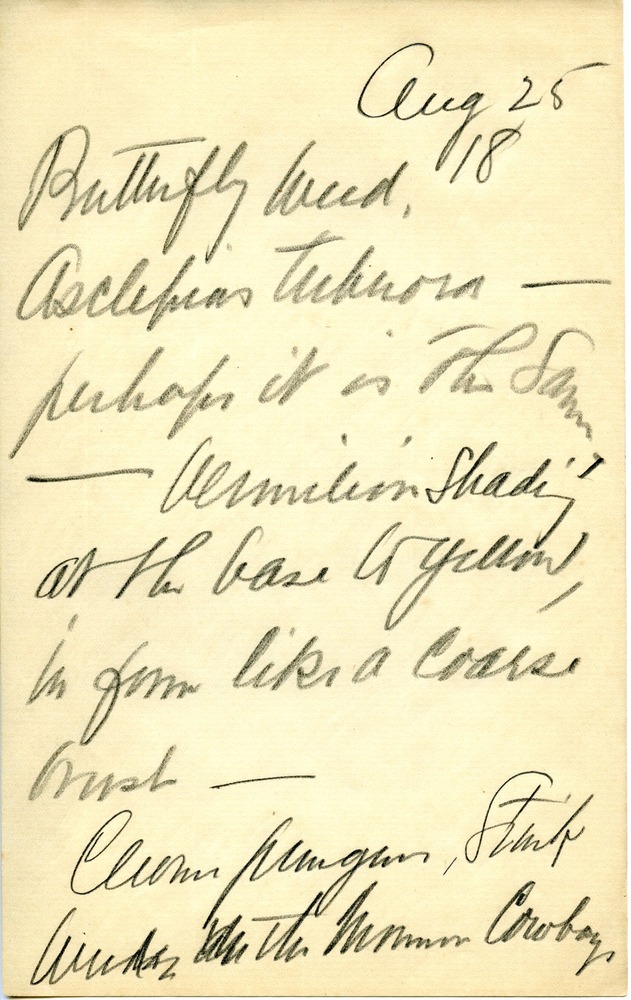 Aug 25
'18
Butterfly Weed,
Asclepias tuberosa —
perhaps it is the same
— Vermilion shading
at the base to yellow,
in form like a coarse
brush —
Cleome pungens, Stink
Weed, the Mormon Cowboys